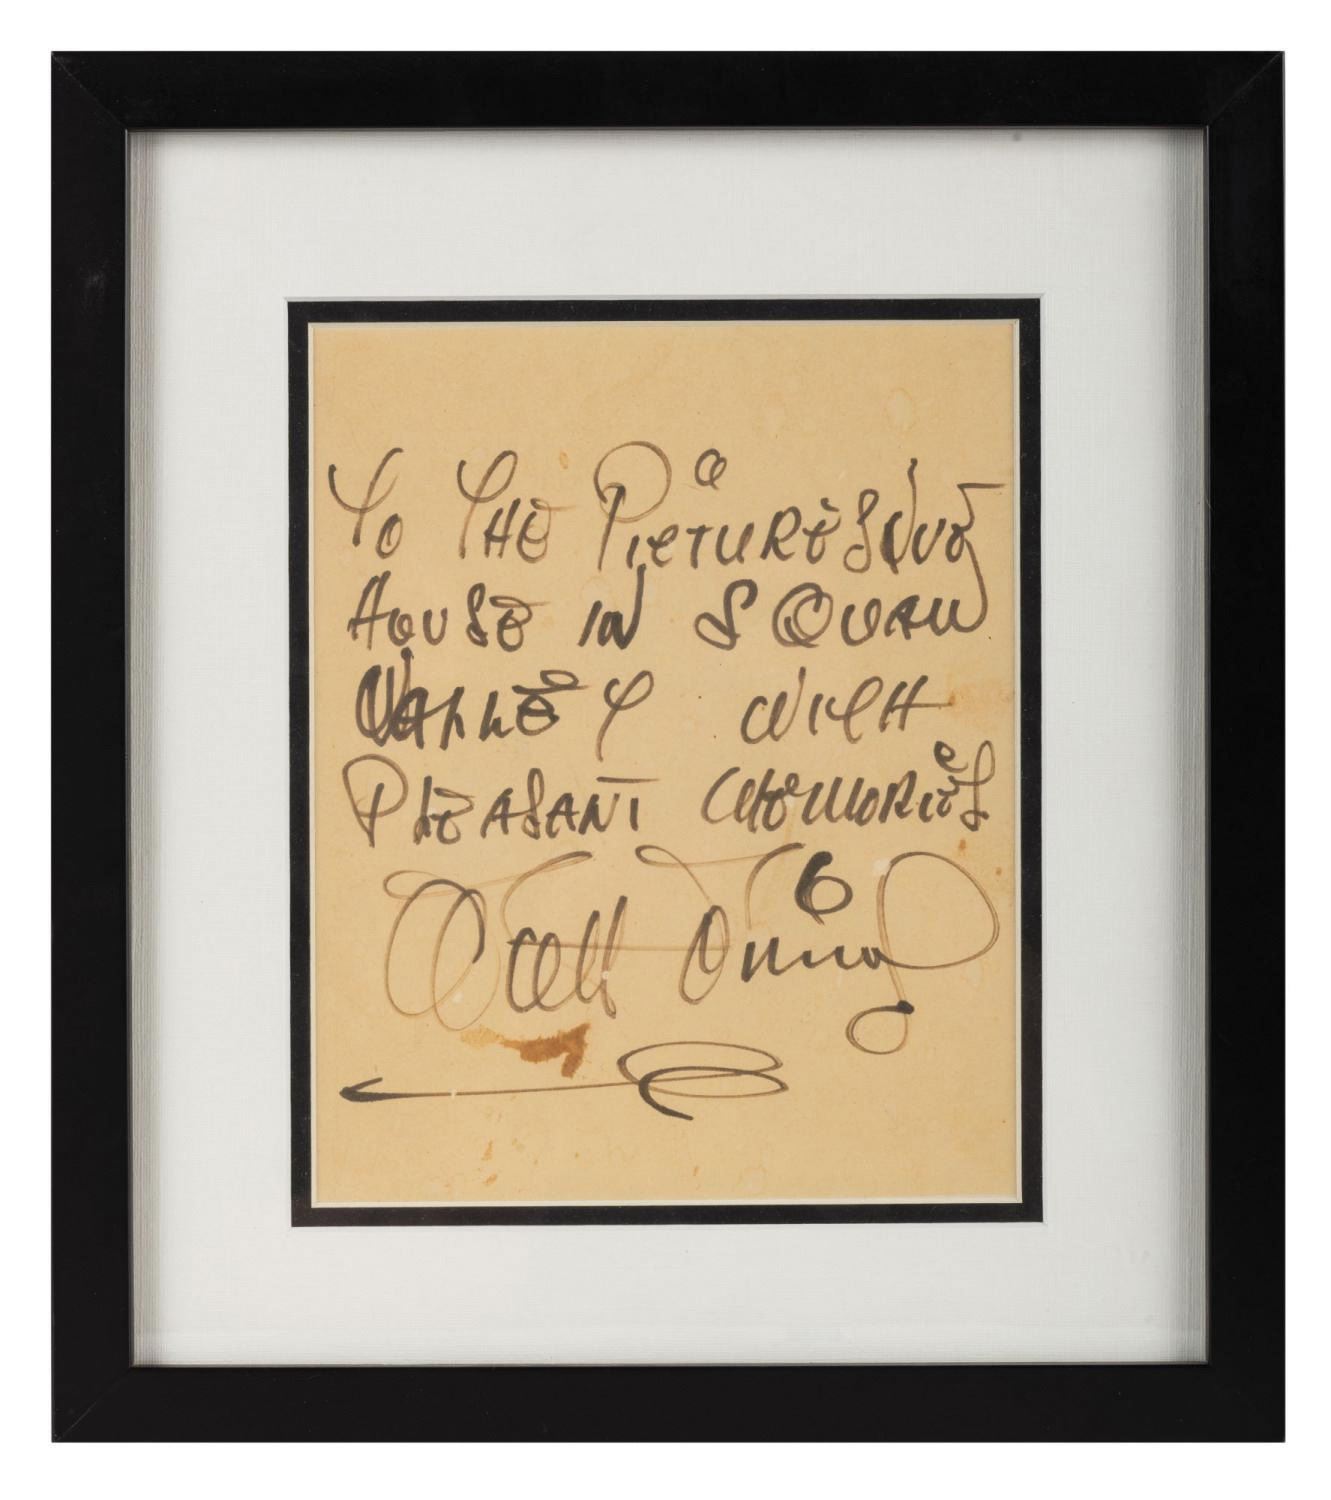 To THE PicTURESQUE
HOUSE IN SQUAW
VALLEY WITH
PLEASANT MEMORIES
Walt Disney